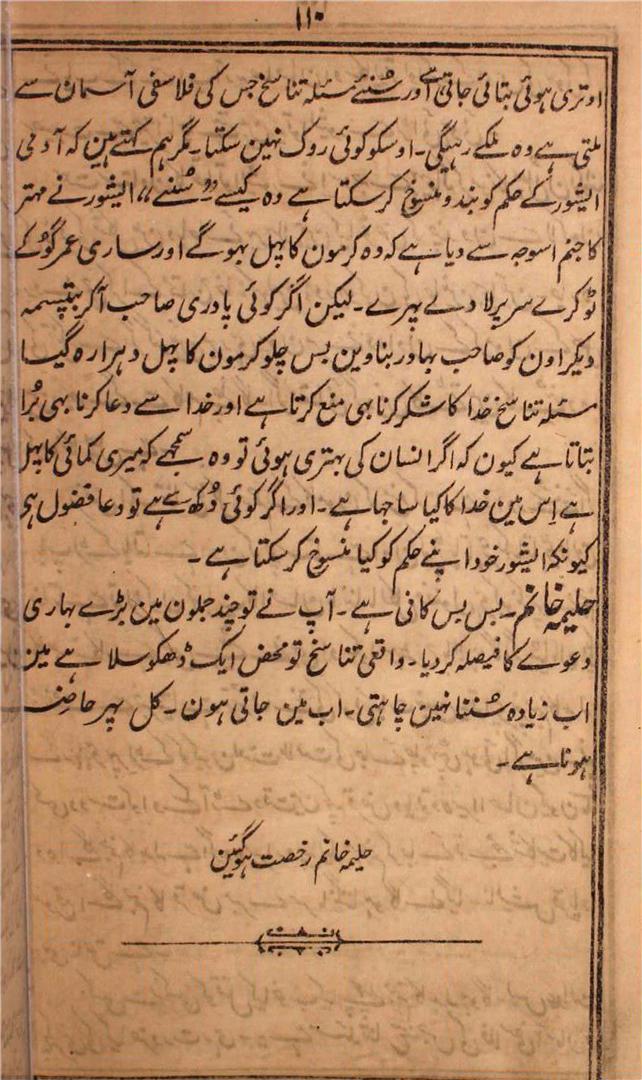 ۱۱۰
اوتری ہوئی بتائی جاتی ہے اور سُنئے مسئلہ تناسخ جس کی فلاسفی آسمان سے
ملتی ہے وہ ملکے رہیگی۔ اوسکو کوئی روک نہین سکتا۔ مگر ہم کہتے ہین کہ آدمی
الیشور کے حکم کو بند و منسوخ کر سکتا ہے وہ کیسے ”سُنئے“ الیشور نے مہتر
کا جنم اسوجہ سے دیا ہے کہ وہ کرمون کا پہل بہوگے اور ساری عمر گوُ کے
ٹوکرے سر پر لادے پہرے۔ لیکن اگر کوئی پادری صاحب آکر بپتسمہ
دیکر اون کو صاحب بہادر بنا وین بس چلو کرمون کا پہل دہرا رہ گیا
مسئلہ تناسخ خدا کا شکر کرنا بھی منع کرتا ہے اور خدا سے دعا کرنا بھی بُرا
بتاتا ہے کیون کہ اگر انسان کی بہتری ہوئی تو وہ سمجھے کہ میری کمائی کا پہل
ہے اِس مین خدا کا کیا ساجہا ہے۔ اور اگر کوئی دُکھ ہے تو دعا فضول ہی
کیونکہ الیشور خود اپنے حکم کو کیا منسوخ کر سکتا ہے۔
حلیمہ خانم۔ بس بس کافی ہے۔ آپ نے تو چند جملون مین بڑے بہاری
دعوے کا فیصلہ کر دیا۔ واقعی تناسخ تو محض ایک ڈھکوسلا ہے مین
اب زیادہ سُننا نہین چاہتی۔ اب مین جاتی ہون۔ کل پہر حاضر
ہونا ہے۔
حلیمہ خانم رخصت ہوگئین